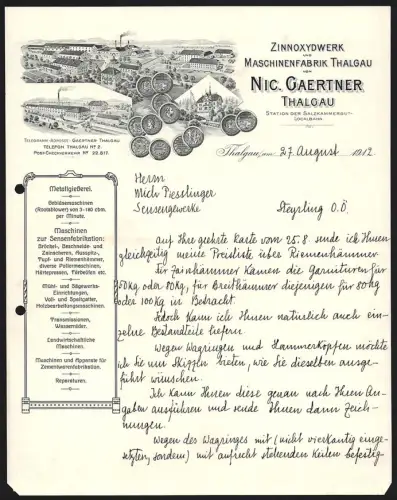 ZINNOXYDWERK
UND
MASCHINENFABRIK THALGAU
VON
NIC. GAERTNER
THALGAU
STATION DER SALZKAMMERGUT-
LOCALBAHN
TELEGRAMM-ADRESSE: GAERTNER THALGAU
TELEFON THALGAU Nº 2.
POSTCHECKKONTO Nº 39.817.
Thalgau, am 27 August 1912
Herrn
Mich Piesslinger
Sensengewerke
Steyrling O.Ö.
Metallgießerei.
Gebläsemaschinen
(Rootsblower) von 3-180 cbm.
per Minute.
Maschinen
zur Sensenfabrikation:
Bröckel-, Beschneide- und
Zainscheren, Ausspitz-,
Tupf- und Riemenhämmer,
diverse Poliermaschinen,
Härtepressen, Färböfen etc.
Mühl- und Sägewerks-
Einrichtungen,
Voll- und Spaltgatter,
Holzbearbeitungsmaschinen.
Transmissionen,
Wasserräder.
Landwirtschaftliche
Maschinen.
Maschinen und Apparate für
Zementwarenfabrikation.
Reparaturen.
Auf Ihre geehrte Karte vom 25.8. sende ich Ihnen
gleichzeitig meine Preisliste über Riemenhämmer
für Zainhämmer kämen die Garnituren für
50kg oder 80kg, für Breithämmer diejenigen für 80kg
oder 100kg in Betracht.
Jedoch kann ich Ihnen natürlich auch ein-
zelne Bestandteile liefern
Wegen Wagringen und Hammerköpfen möchte
ich Sie um Skizzen bitten, wie Sie dieselben ausge-
führt wünschen.
Ich kann Ihnen diese genau nach Ihren An-
gaben ausführen und sende Ihnen dann Zeich-
nungen.
Wegen des Wagringes mit (nicht vierkantig einge-
setzten, sondern) mit aufrecht stehenden Keilen befestig-